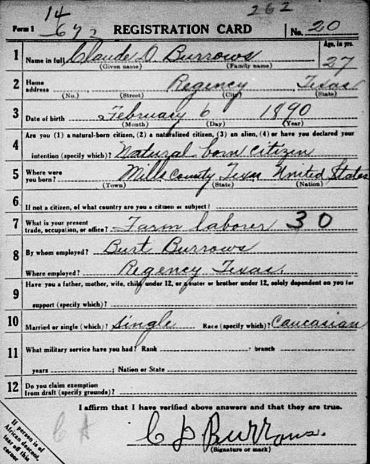 14
262
Form 1
REGISTRATION CARD
No. 20
1 Name in full Claude D. Burrows
(Given name) (Family name)
Age, in yrs. 27
2 Home address Regency Texas
(No.) (Street) (City) (State)
3 Date of birth February 6 1890
(Month) (Day) (Year)
4 Are you (1) a natural-born citizen, (2) a naturalized citizen, (3) an alien, (4) or have you declared your
intention (specify which)? Natural born Citizen
5 Where were you born? Mills County Texas United States
(Town) (State) (Nation)
6 If not a citizen, of what country are you a citizen or subject?
7 What is your present trade, occupation, or office? Farm laborer 30
8 By whom employed? Burt Burrows
Where employed? Regency Texas.
9 Have you a father, mother, wife, child under 12, or a sister or brother under 12, solely dependent on you for
support (specify which)?
10 Married or single (which)? Single Race (specify which)? Caucasian
11 What military service have you had? Rank branch
years Nation or State
12 Do you claim exemption from draft (specify grounds)?
I affirm that I have verified above answers and that they are true.
C D Burrows.
(Signature or mark)
If person is of
African descent,
tear off this
corner